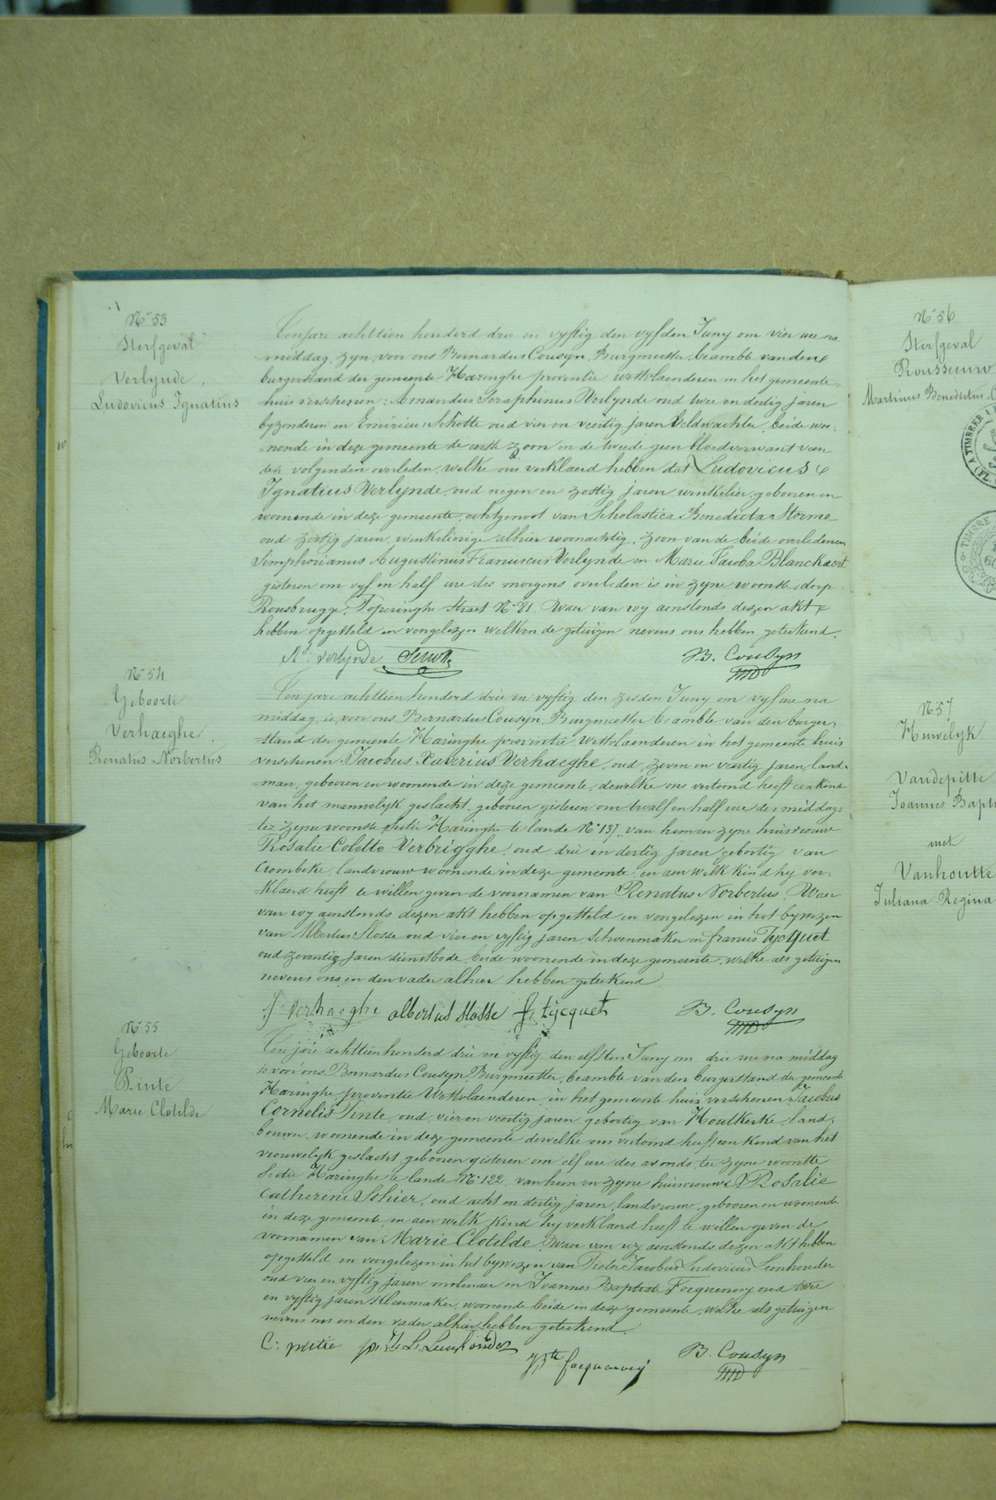 N° 53
Sterfgeval
Verlynde
Ludovicus Ignatius
Ten jare achttien honderd drie en vyftig den vyfden Juny om vier ure na
middag, zyn voor ons Bernardus Cousyn, Burgmeester, beambte van den
burgerstand der gemeente Haringhe provintie Westvlaenderen in het gemeente
huis verschenen: Amandus Seraphinus Verlynde oud twee en dertig jaren
byzonderen en Emericus Schotte oud vier en veertig jaren Veldwachter, beide woo-
nende in deze gemeente de eerste zoon en de tweede geen bloedverwant van
den volgenden overleden, welke ons verklaerd hebben dat Ludovicus
Ignatius Verlynde, oud negen en zestig jaren, winkelier, geboren en
wonende in deze gemeente, echtgenoot van Scholastica Benedicta Storme
oud zestig jaren, winkelierige alhier woonachtig, zoon van de beide overledenen
Simphorianus Augustinus Franciscus Verlynde en Marie Jacoba Blanckaert
gisteren om vyf en half ure des morgens overleden is in zyne woonste, dorp
Rousbrugge, Poperinghe straet N° 81. Waer van wy aenstonds dezen akt
hebben opgesteld en voorgelezen welken de getuigen nevens ons hebben geteekend.
A. Verlynde Schotte B. Cousyn
N° 54
Geboorte
Verhaeghe
Renatus Norbertus
Ten jare achttien honderd drie en vyftig den zesden Juny om vyf ure na
middag, is voor ons Bernardus Cousyn, Burgmeester beambte van den burger-
stand der gemeente Haringhe provintie Westvlaenderen in het gemeente huis
verschenen Jacobus Xaverius Verhaeghe, oud zeven en veertig jaren, land-
man, geboren en wonende in deze gemeente, dewelke ons vertoond heeft een kind
van het mannelyk geslacht, geboren gisteren om twalf en half ure des middags
ter zyne woonste sectie Haringhe te lande N° 137, van hem en zyne huisvrouw
Rosalie Colette Verbrigghe, oud drie en dertig jaren geboortig van
Crombeke, landvrouw woonende in deze gemeente, en aen welk kind hy ver-
klaerd heeft te willen geven de voornamen van Renatus Norbertus. Waer
van wy aenstonds dezen akt hebben opgesteld en voorgelezen in het bywezen
van Albertus Stosse oud vier en vyftig jaren Schoenmaker en francis Tyecquet
oud zeventig jaren dienstbode, beide woonende in deze gemeente, welke als getuigen
nevens ons en den vader alhier hebben geteekend.
J. verhaeghe albertus stosse fr tyecquet B. Cousyn
N° 55
Geboorte
Pinte
Marie Clotilde
Ten jare achttien honderd drie en vyftig, den elfsten Juny om drie ure na middag
is voor ons Bernardus Cousyn, Burgmeester, beambte van den burgerstand der gemeente
Haringhe, provintie Westvlaenderen, in het gemeente huis verschenen Jacobus
Cornelis Pinte, oud vier en veertig jaren, geboortig van Houtkerke, land-
bouwer, woonende in deze gemeente dewelke ons vertoond heeft een kind van het
vrouwelyk geslacht geboren gisteren om elf ure des avonds, ter zyne woonste
sectie Haringhe te lande N° 122 van hem en zyne huisvrouw Rosalie
Catherine Schier, oud acht en dertig jaren, landvrouw, geboren en woonende
in deze gemeente, en aen welk kind hy verklaerd heeft te willen geven de
voornamen van Marie Clotilde. Waer van wy aenstonds dezen akt hebben
opgesteld en voorgelezen in het bywezen van Jacobus Ludovicus
oud vier en vyftig jaren molenaer en Joannes Baptiste Focquenoey oud twee
en vyftig jaren kleermaker, woonende beide in deze gemeente, welke als getuigen
nevens ons en den vader alhier hebben geteekend.
C: pintie B. Cousyn
N° 56
Sterfgeval
Rousseeuw
Martinus Benedictus
N° 57
Huwelyk
Vandepitte
Joannes Bapti
met
Vanhoutte
Juliana Regina